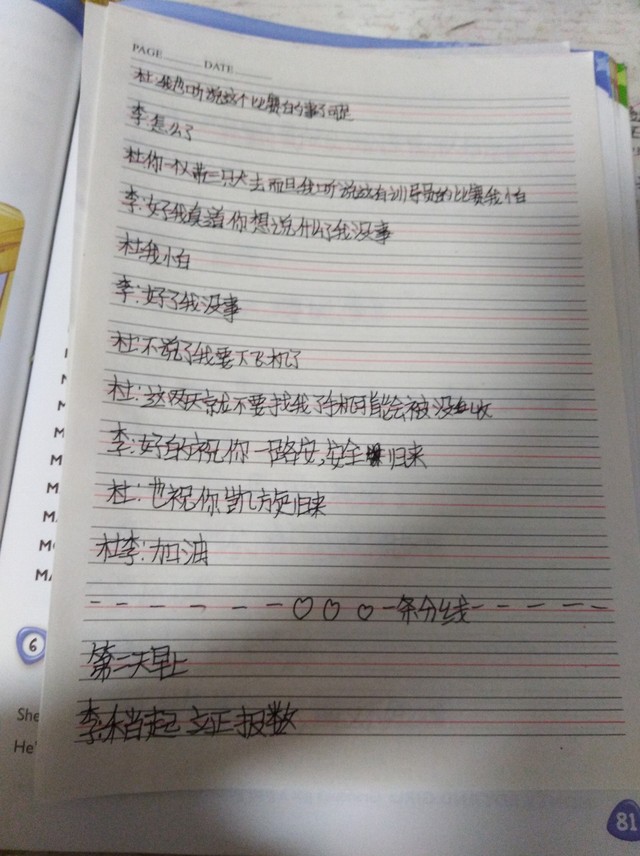 PAGE DATE
杜:我也听说这个比赛的事了可是
李:怎么了
杜你一仅带三只犬去而且我听说这有训导员的比赛我怕
李:好我真道你想说什么了我没事
杜:我怕
李:好了我没事
杜:不说了我要下飞机了
杜:这两天京就不要找我了手机可能会被没收
李:好的祝你一路安,安全归来
杜:也祝你凯旋归来
杜李:加油
------♡♡♡一条分线-----
第二天早上
李:起立正报数
6
She
He'
81
M
M
M
M
M